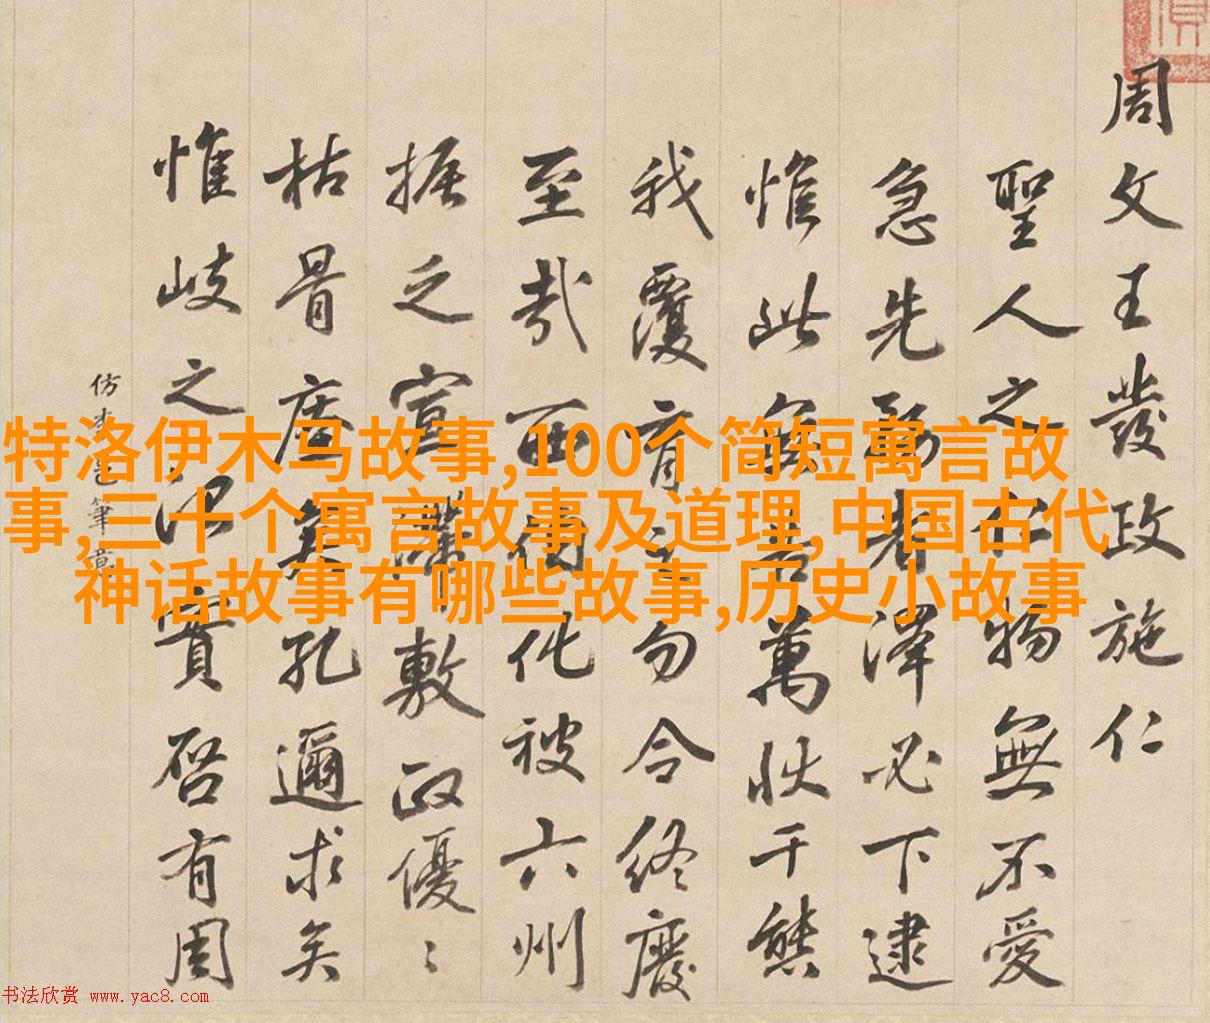 周文王發政施仁
聖人之物無不愛
急先者澤必下逮
惟此無告萬狀千態
我覆育之勿令終廢
至哉西伯化被六州
振之宣敷政優〻
枯骨孔邇求矣
惟岐之實啓有周
仿李筆意
特洛伊木马故事,100个简短寓言故
事,三十个寓言故事及道理,中国古代
神话故事有哪些故事,历史小故事
书法欣赏 www.yac8.com